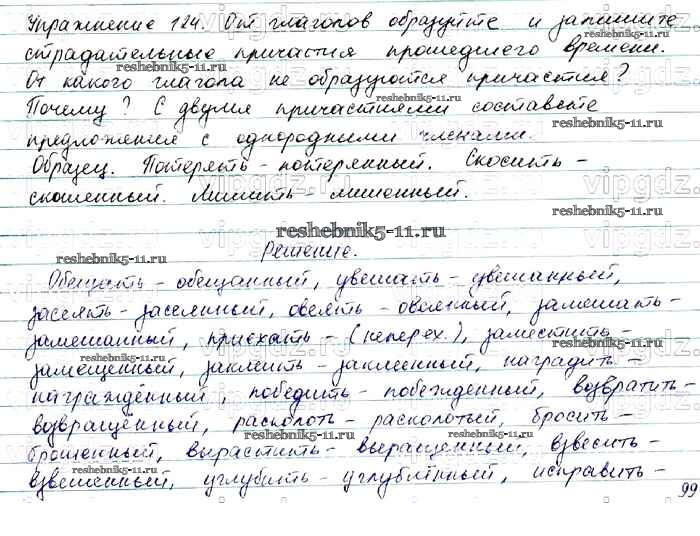 Упражнение 124. От глаголов образуйте и запишите
страдательные причастия прошедшего времени.
От какого глагола не образуются причастия?
Почему? С двумя причастиями составьте
предложения с однородными членами.
Образец. Потерять - потерянный. Скосить -
скошенный. Лишить - лишенный.
Решение.
Обещать - обещанный, увешать - увешанный,
засеять - засеянный, овеять - овеянный, замешать -
замешанный, приехать - (неперех.), заместить -
замещенный, заклеить - заклеенный, наградить -
награждённый, победить - побежденный, возвратить -
возвращённый, расколоть - расколотый, бросить -
брошенный, вырастить - выращенный, взвесить -
взвешенный, углубить - углублённый, исправить -
99
reshebnik5-11.ru
vipgdz.ru